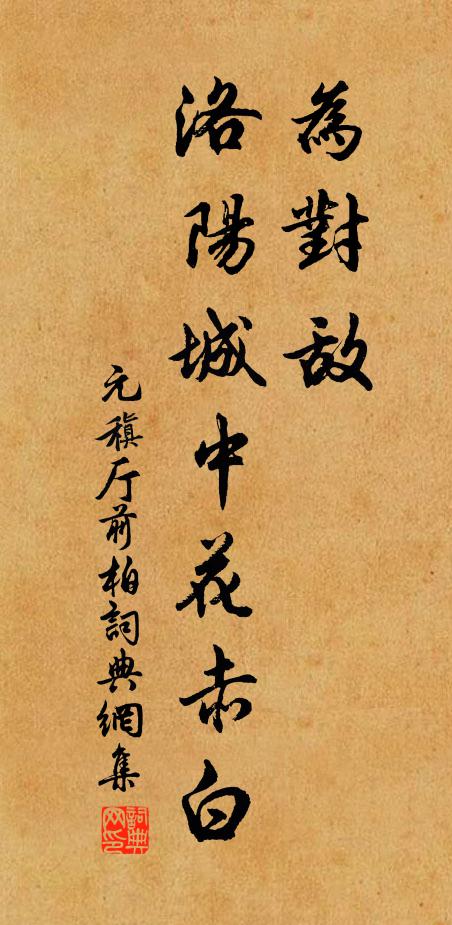 為對敵
洛陽城中花赤白
元稹厅前柏詞典網集
詞典
网印